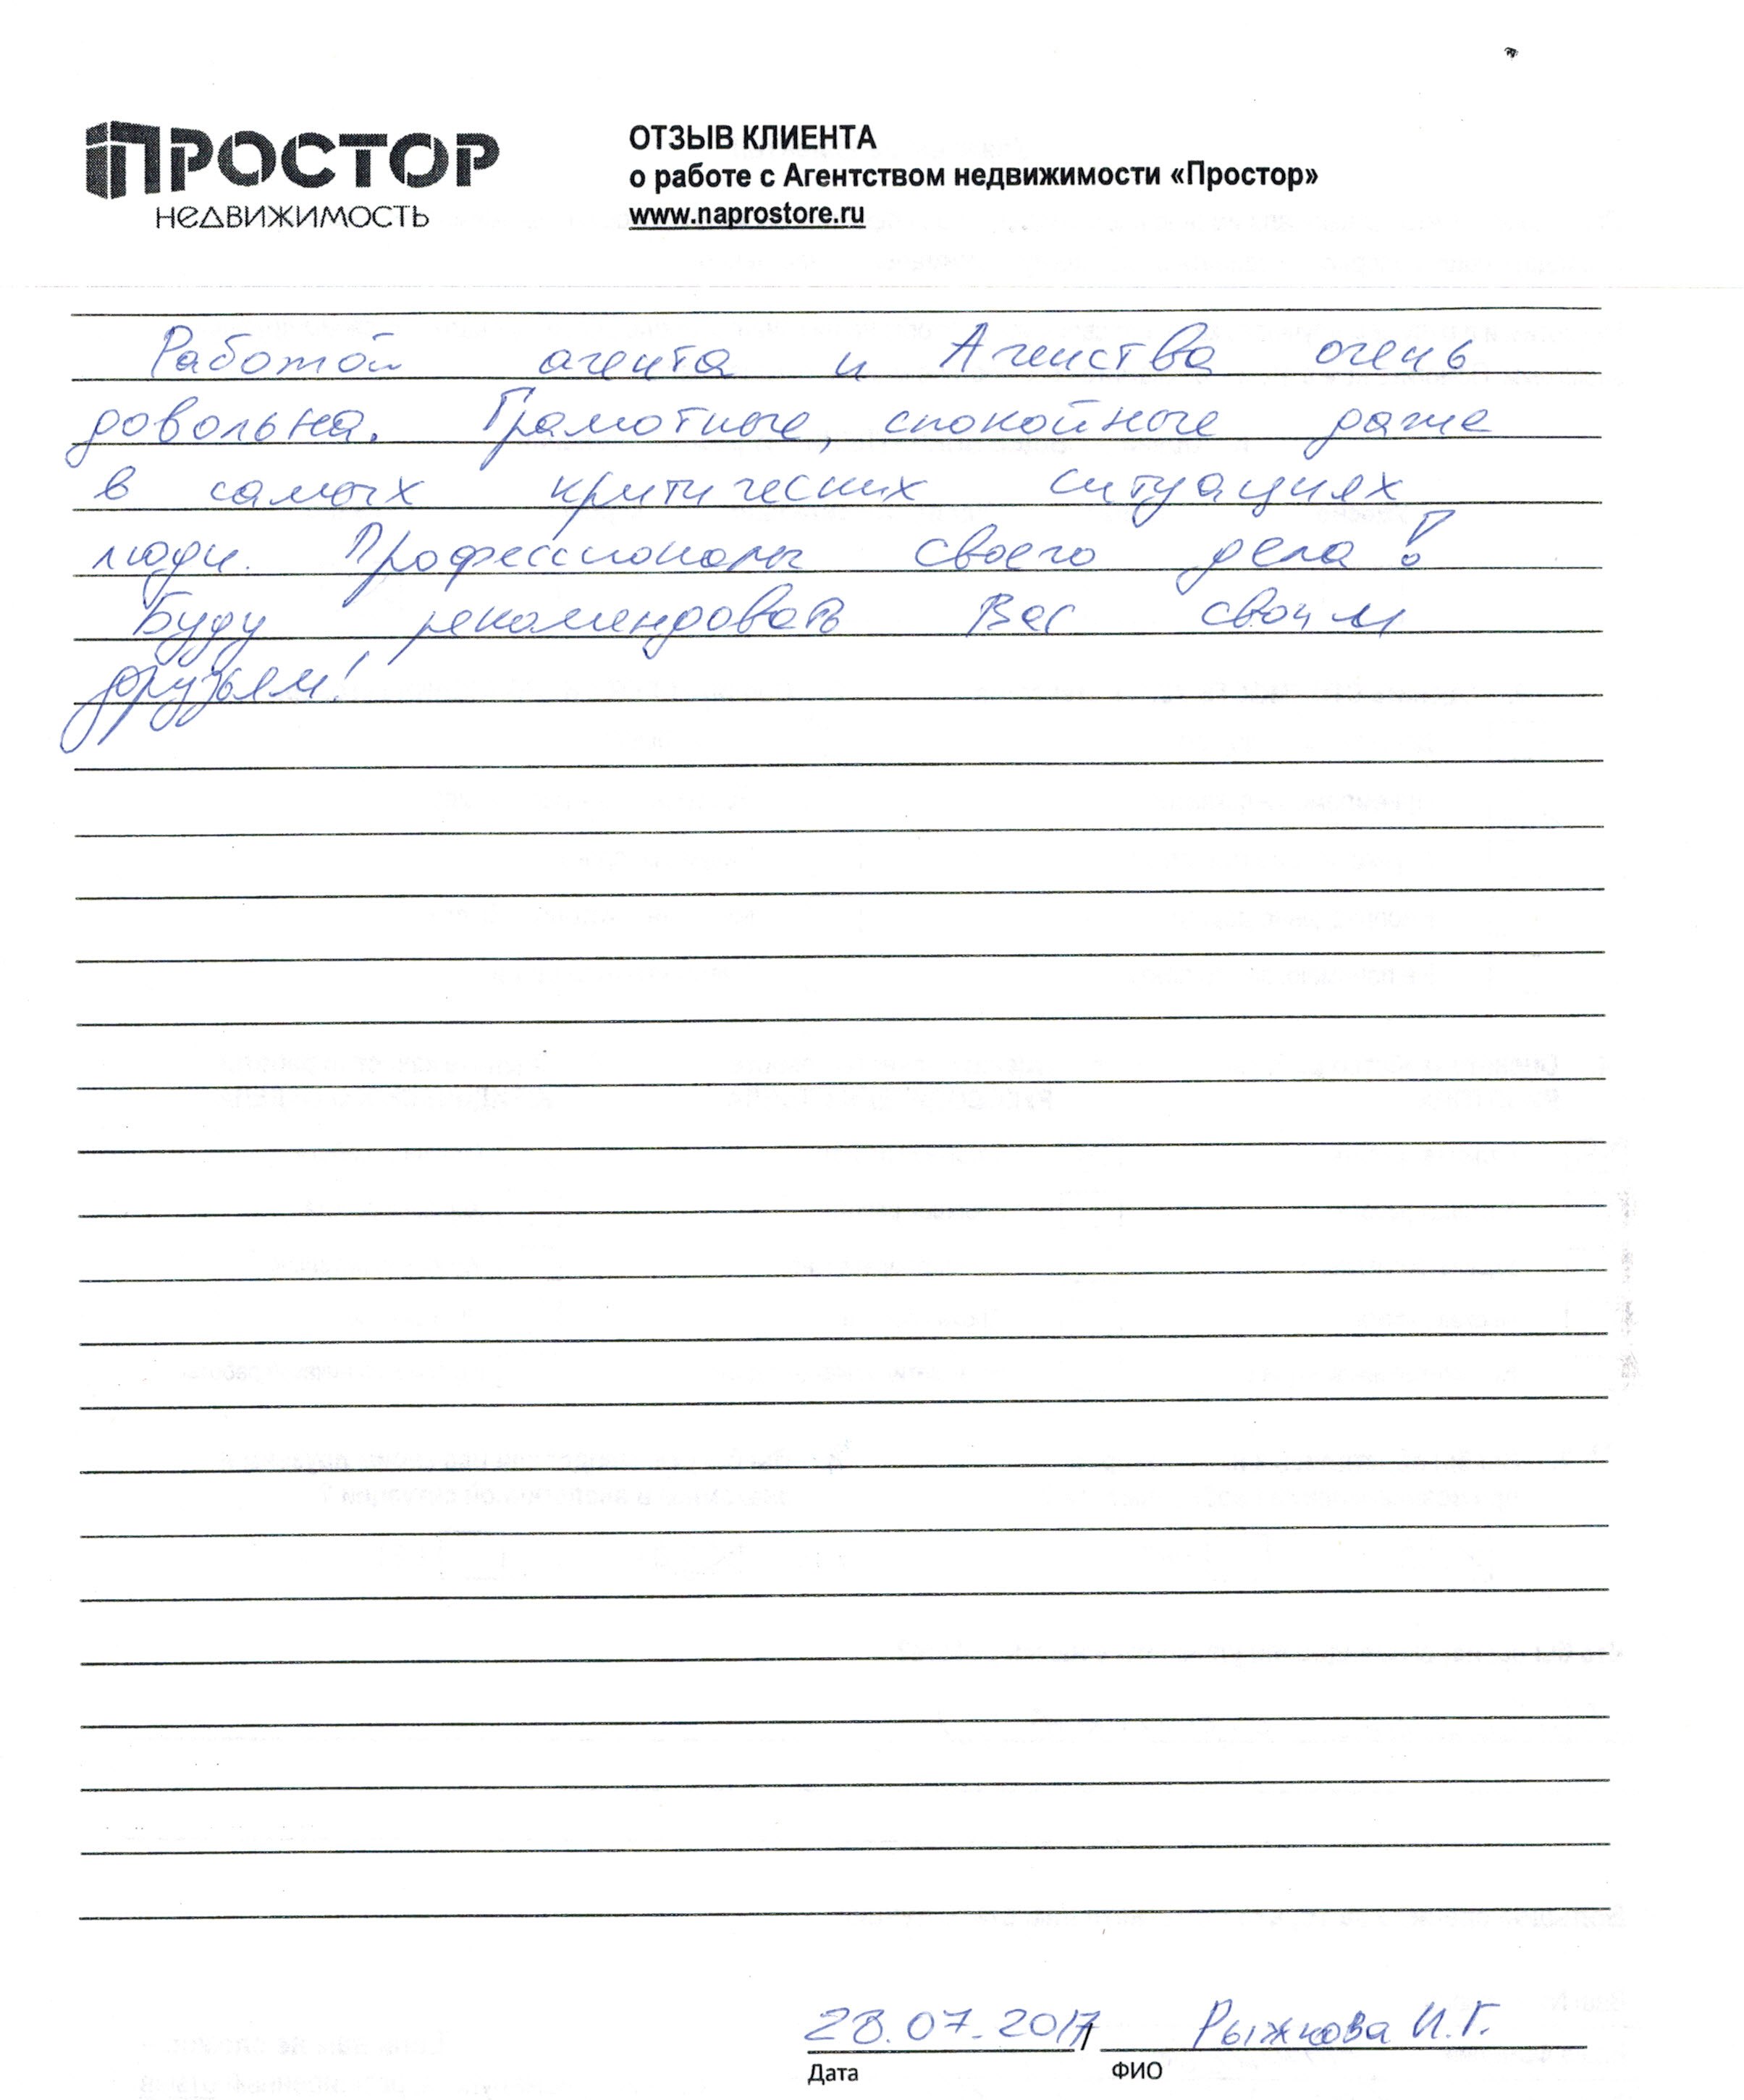 ПРОСТОР
НЕДВИЖИМОСТЬ
ОТЗЫВ КЛИЕНТА
о работе с Агентством недвижимости «Простор»
www.naprostore.ru
Работой агента и Агенства очень
довольна. Грамотные, спокойные даже
в самых критических ситуациях
люди. Профессионалы своего дела!
Буду рекомендовать Вас своим
друзьям!
28.07.2017 / Рыжкова И.Г.
Дата ФИО